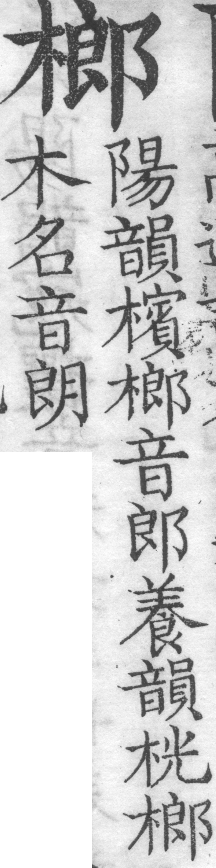 榔
陽韻檳榔音郎養韻桄榔
木名音朗